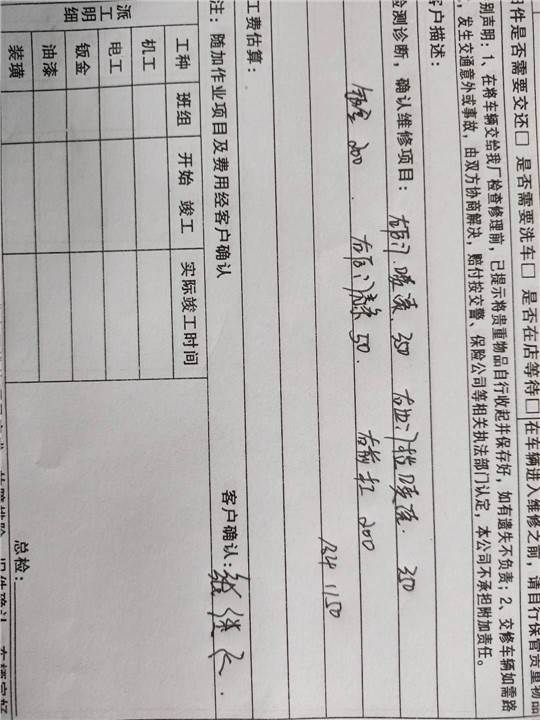 旧件是否需要交还□ 是否需要洗车□ 是否在店等待□ 在车辆进入维修之前，请自行保管贵重物品
别声明：1、在将车辆交给我厂检查修理前，已提示将贵重物品自行收起并保存好，如有遗失不负责；2、交修车辆如需路
，发生交通意外或事故，由双方协商解决，赔付按交警、保险公司等相关执法部门认定，本公司不承担附加责任。
客户描述：
检测诊断，确认维修项目： 右后门 喷漆 350 右 喷漆. 350
钣金 200 . 右后门 50. 右前杠 200
1150
工费估算：
注：随加作业项目及费用经客户确认 客户确认：
派工明细 工种 班组 开始 竣工 实际竣工时间
机工
电工
钣金
油漆
装璜
总检：